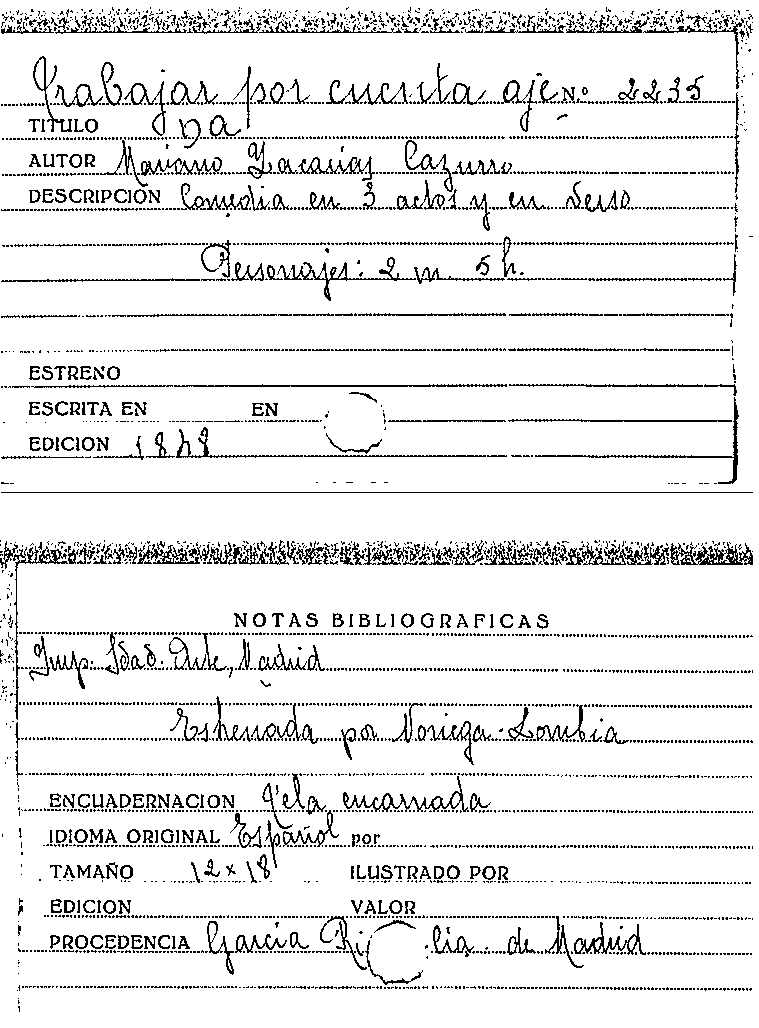 Trabajar por cuenta aje Nº 2235
TITULO na
AUTOR Mariano Zacarias Cazurro
DESCRIPCIÓN Comedia en 3 actos y en verso
Personajes: 2 m. 5 h.
ESTRENO
ESCRITA EN EN
EDICION 1848
NOTAS BIBLIOGRAFICAS
Imp. Sdad. Arte, Madrid
Estrenada por Noriega-Lombia
ENCUADERNACION Tela encarnada
IDIOMA ORIGINAL Español por
TAMAÑO 12 x 18 ILUSTRADO POR
EDICION VALOR
PROCEDENCIA Garcia de Madrid